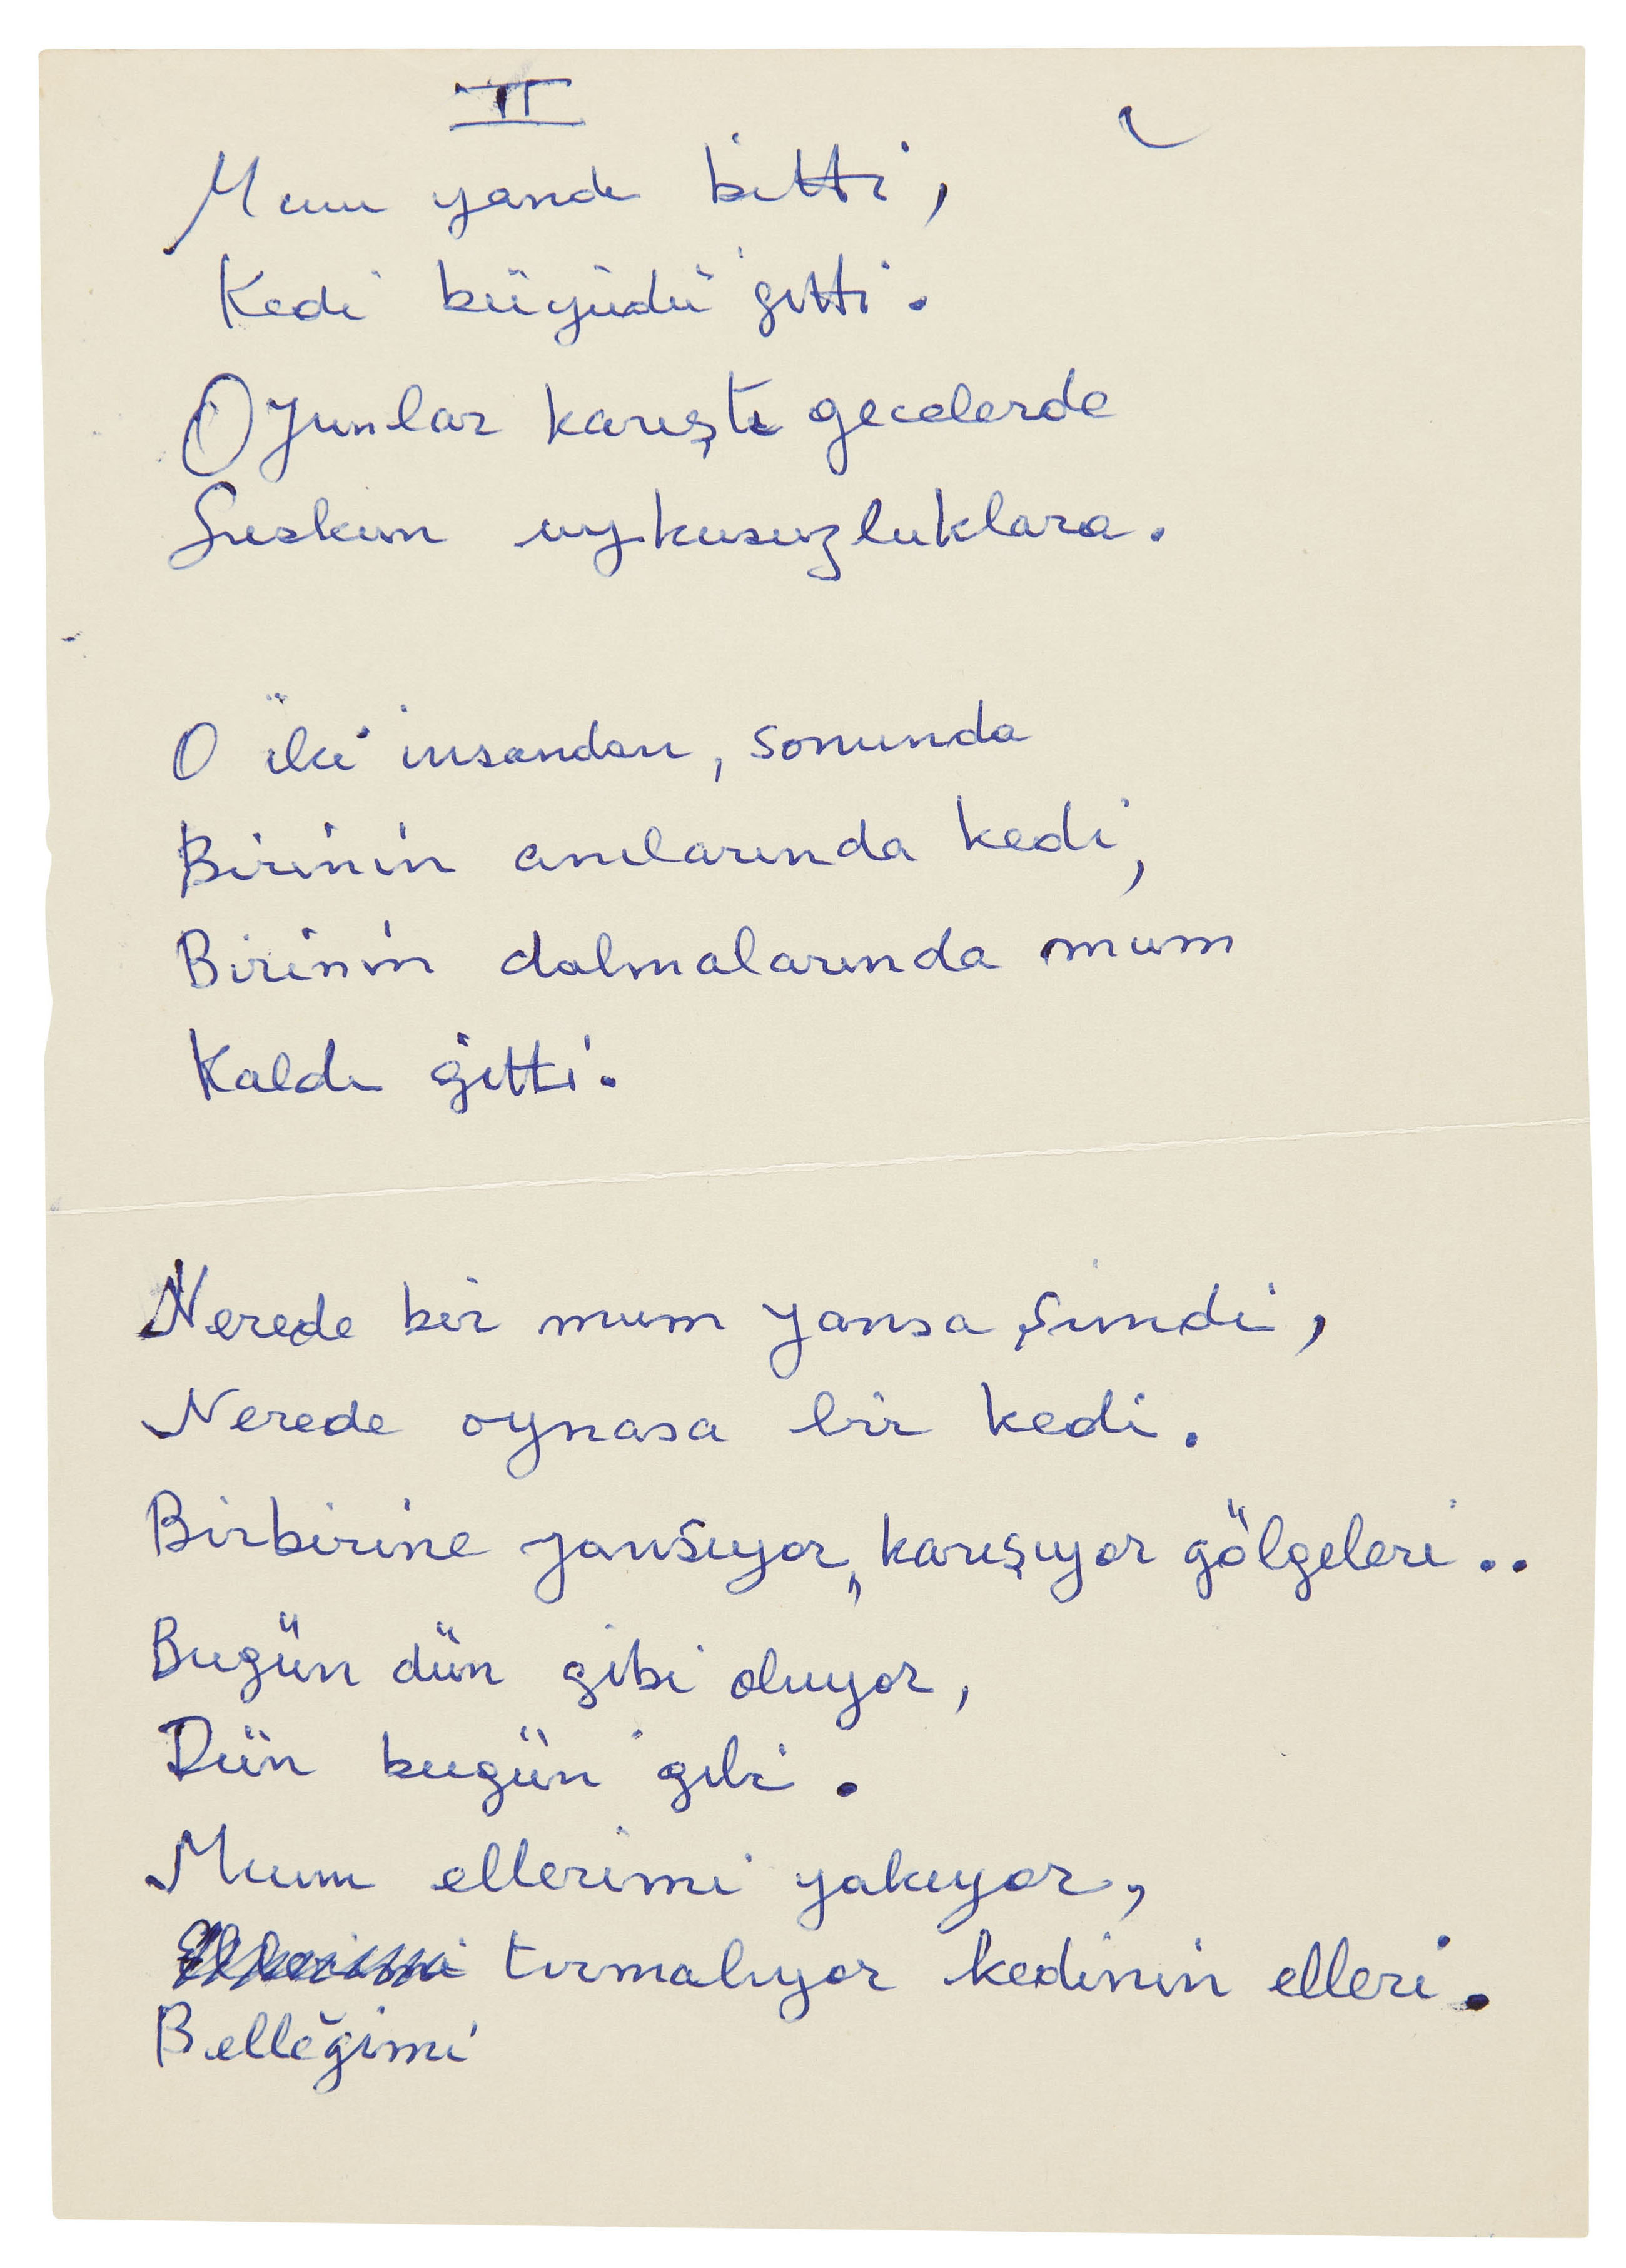 II
Mum yandı bitti,
Kedi büyüdü gitti.
Oyunlar karıştı gecelerde
Suskun uykusuzluklara.
O iki insandan, sonunda
Birinin anılarında kedi,
Birinin dalmalarında mum
Kaldı gitti.
Nerede bir mum yansa şimdi,
Nerede oynasa bir kedi.
Birbirine yansıyor, karışıyor gölgeleri..
Bugün dün gibi oluyor,
Dün bugün gibi.
Mum ellerimi yakıyor,
Ellerimi tırmalıyor kedinin elleri.
Belleğimi